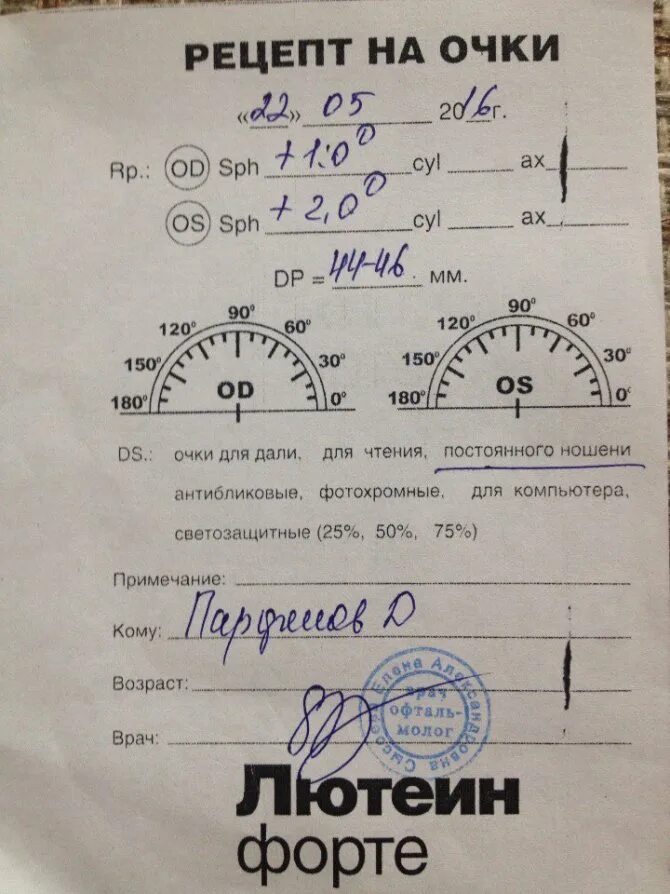 РЕЦЕПТ НА ОЧКИ
«22» 05 2016г.
Rp.: OD Sph +1.0⁰ cyl ax
OS Sph +2,0⁰ cyl ax
DP = 44-46 мм.
180⁰ 150⁰ 120⁰ 90⁰ 60⁰ 30⁰ 0⁰ OD
180⁰ 150⁰ 120⁰ 90⁰ 60⁰ 30⁰ 0⁰ OS
DS.: очки для дали, для чтения, постоянного ношени
антибликовые, фотохромные, для компьютера,
светозащитные (25%, 50%, 75%)
Примечание:
Кому: Парфенов Д
Возраст:
Врач:
Елена Александровна
врач
офталь-
молог
Лютеин
форте